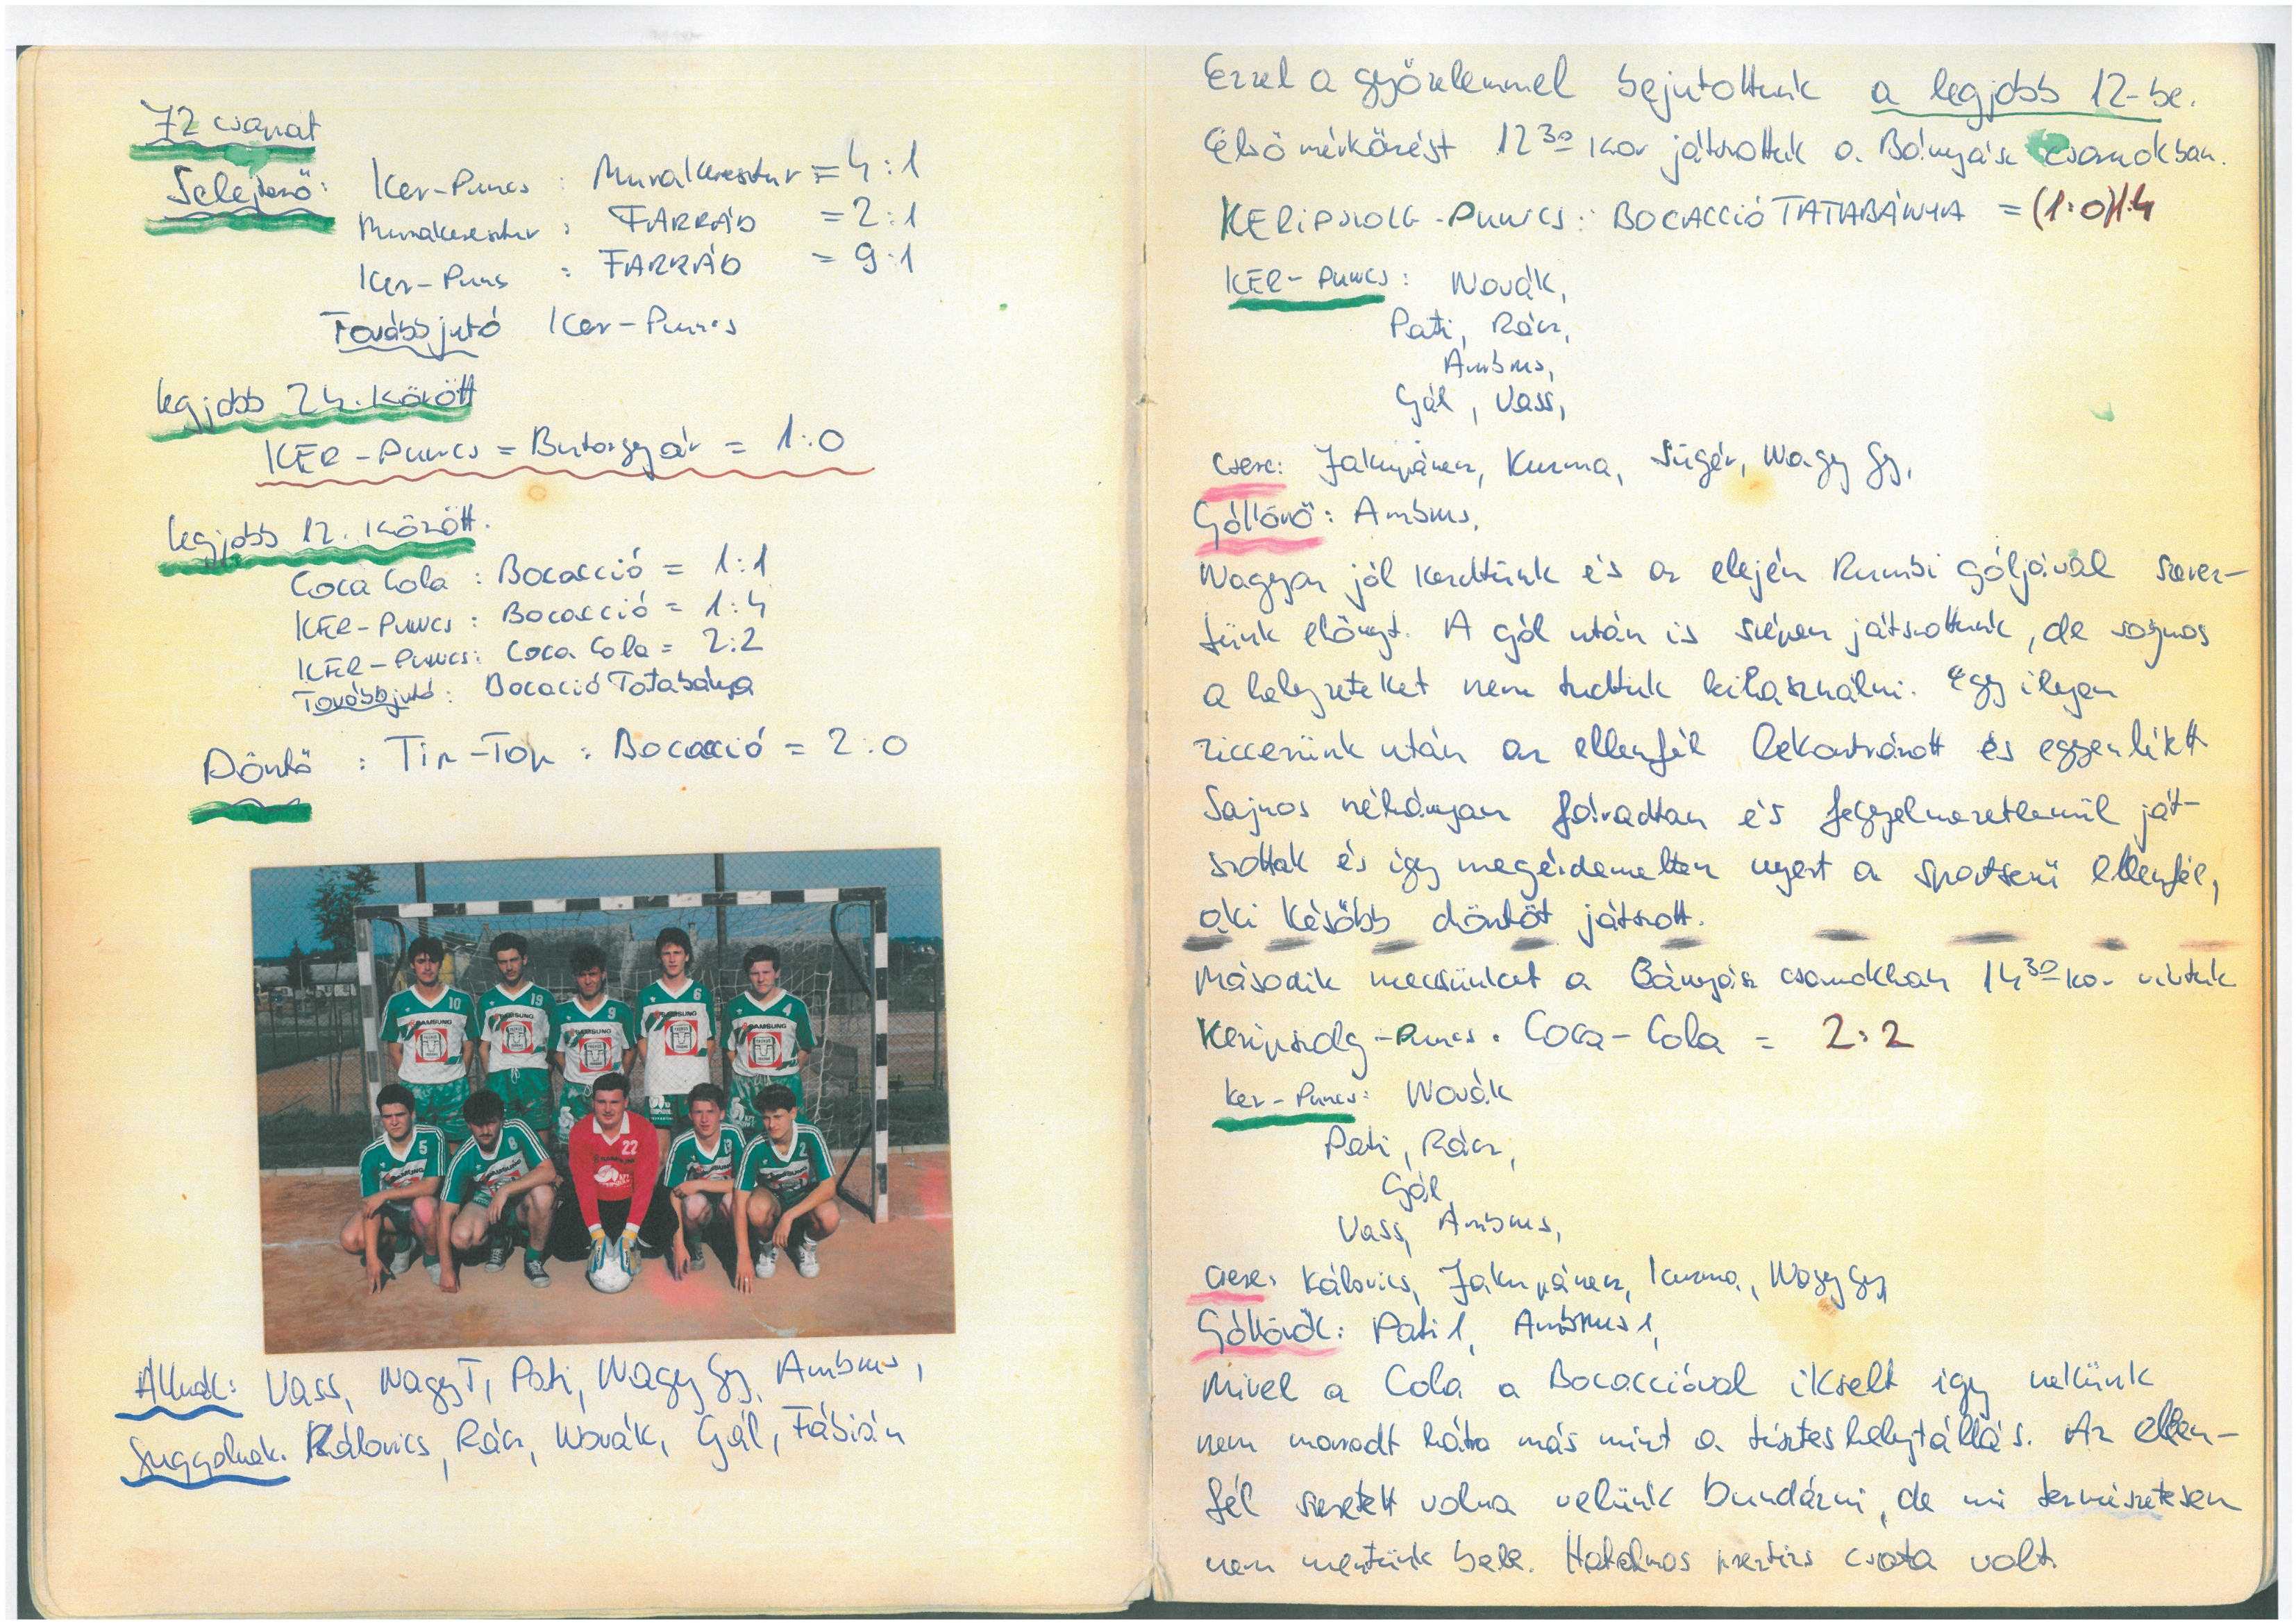 72 csapat
Selejtező: Ker-Puncs : Murakeresztur = 4:1
Murakeresztur : FARRÁD = 2:1
Ker-Puncs : FARRÁD = 9:1
Továbbjutó Ker-Puncs
legjobb 24. között
KER-Puncs = Butorgyár = 1:0
legjobb 12. között.
Coca Cola : Bocacció = 1:1
KER-Puncs : Bocacció = 1:4
KER-Puncs : Coca Cola = 2:2
Továbbjutó : Bocació Tatabánya
Döntő : Tip-Top : Bocacció = 2:0
10 19 9 6 4
SAMSUNG
5 8 22 13 2
Állnak: Vass, Nagy T, Pati, Nagy Gy, Ambrus,
Guggolnak. Kálovics, Rácz, Novák, Gál, Fábián
Ezzel a győzelemmel bejutottunk a legjobb 12-be.
Első mérkőzést 12 30 kor játszottuk a Bányász csarnokban.
KERiPSZOLG-PUNCS : BOCACCIÓ TATABÁNYA = (1:0) 1:4
KER-PUNCS : Novák,
Pati, Rácz,
Ambrus,
Gál, Vass,
Csere: Jakupánecz, Kuzma, Sügér, Nagy Gy,
Góllövő: Ambrus,
Nagyon jól kezdtünk és az elején Rumbi góljával szerez-
tünk előnyt. A gól után is szépen játszottunk, de sajnos
a helyzeteket nem tudtuk kihasználni. Egy ilyen
ziccerünk után az ellenfél lekontrázott és egyenlített
Sajnos néhányan fáradtan és fegyelmezetlenül ját-
szottak és igy megérdemelten nyert a sportszerü ellenfél,
aki később döntőt játszott.
Második meccsünket a Bányász csarnokban 14 30 kor vívtuk
Keripszolg-Puncs : Coca-Cola = 2:2
Ker-Puncs: Novák
Pati, Rácz,
Gál,
Vass, Ambrus,
Csere: Kálovics, Jakupánecz, Kuzma, Nagy Gy,
Góllövők: Pati 1, Ambrus 1,
Mivel a Cola a Bocaccióval ikszelt igy nekünk
nem maradt hátra más mint a tisztes helytállás. Az ellen-
fél szeretett volna velünk bundázni, de mi természetesen
nem mentünk bele. Hatalmas presztizs csata volt.